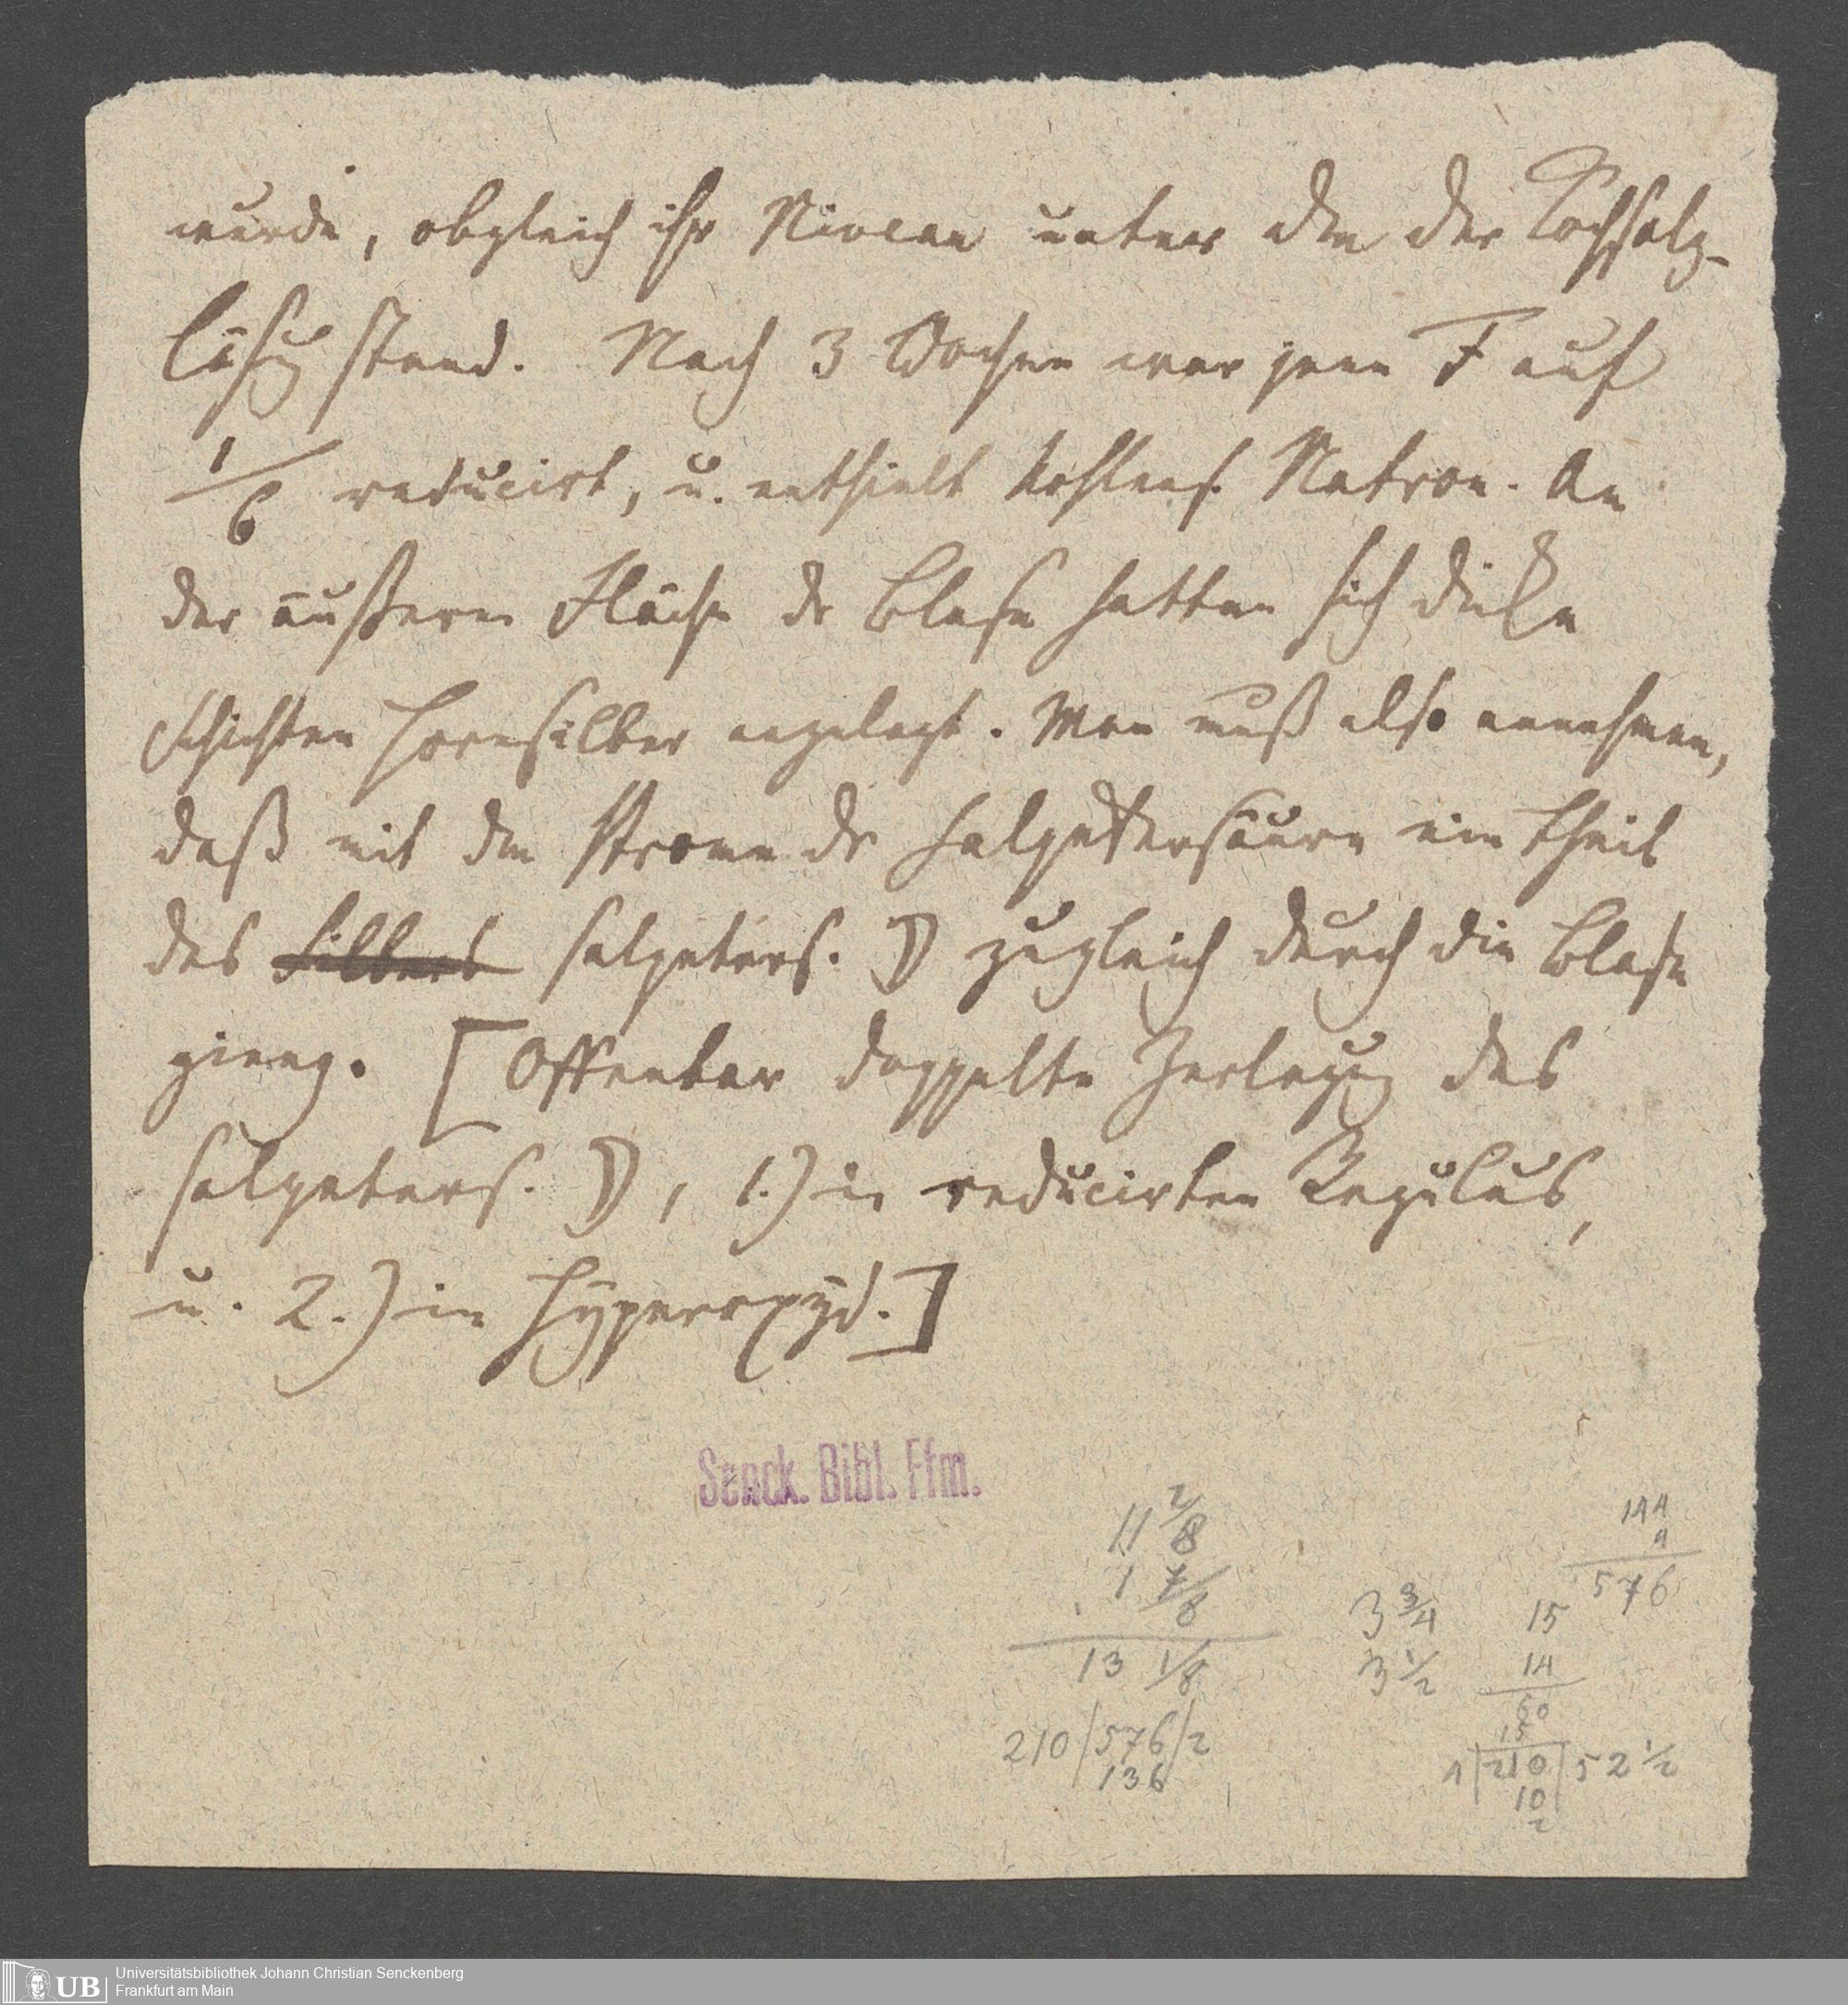 wurde, obgleich ihr Niveau unter dem der Kochsalz-
lösug stand. Nach 3 Wochen war jene F auf
1/6 reducirt, u. enthielt kohlens. Natron. An
der äußeren Fläche dr Blase hatten sich dicke
Schichten Hornsilber angelegt. Man muß also annehmen,
daß mit dem Strome dr Salpetersäure ein Theil
des Silbers salpeters. ☽ zugleich durch die Blase
gieng. [Offenbar doppelte Zerlegug des
salpeters. ☽, 1.) in reducirten Regulus,
u. 2.) in Hyperoxyd.]
Senck. Bibl. Ffm.
11 2/8
1 7/8
13 1/8
210/576/2
136
3 3/4
3 1/2
15
14
60
15
4|210|52 1/2
10
2
144
4
576
UB
Universitätsbibliothek Johann Christian Senckenberg
Frankfurt am Main